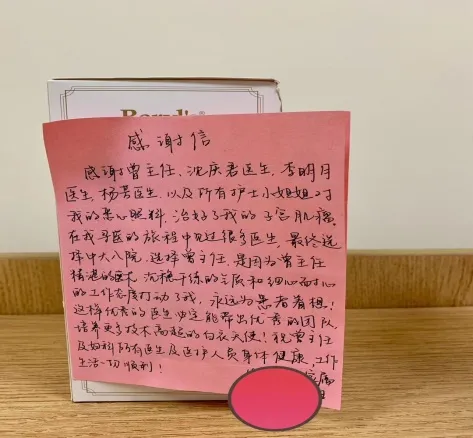 感谢信
感谢曾主任、沈庆君医生、李明月
医生、杨芳医生,以及所有护士小姐姐对
我的悉心照料,治好了我的子宫肌瘤。
在我寻医的旅程中见过很多医生,最终选
择中大八院,选择曾主任,是因为曾主任
精湛的医术,沉稳干练的气质和细心耐心
的工作态度打动了我,永远为患者着想!
这样优秀的医生必定能带出优秀的团队,
培养更多技术高超的白衣天使!祝曾主任
及妇科所有医生及医护人员身体健康,工作
生活一切顺利!